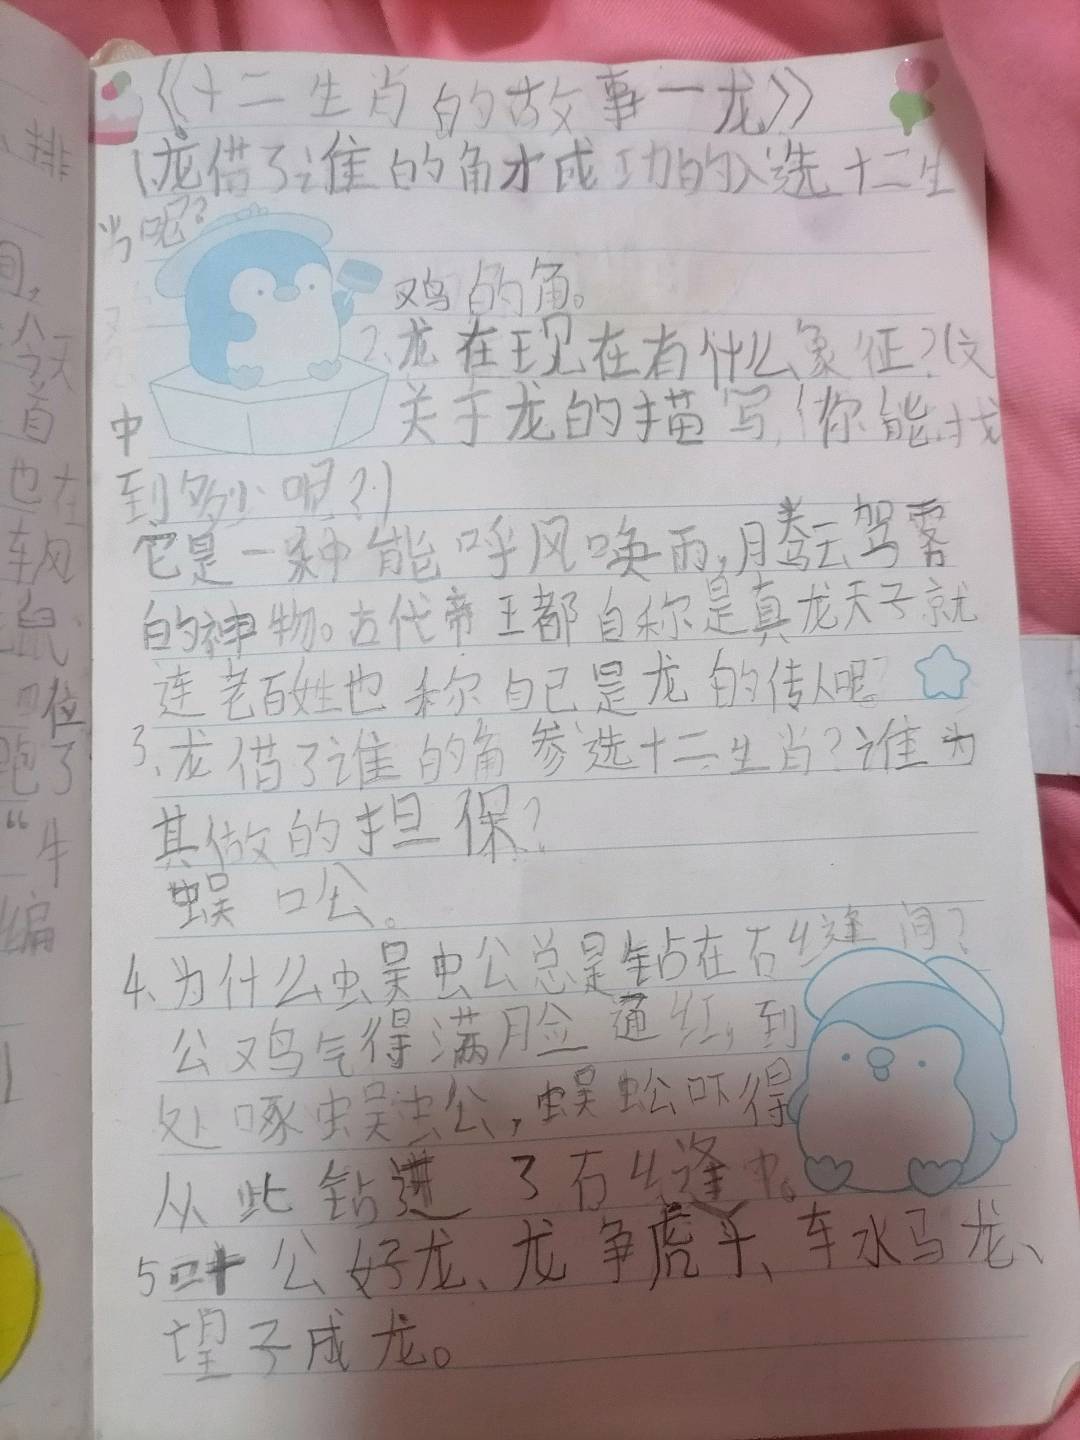 《十二生肖的故事一龙》
1、龙借了谁的角才成功的入选十二生
肖呢?
鸡的角。
2、龙在现在有什么象征?(文
中关于龙的描写,你能找
到多少呢?)
它是一种能呼风唤雨,腾云驾雾
的神物。古代帝王都自称是真龙天子就
连老百姓也称自己是龙的传人呢?
3、龙借了谁的角参选十二生肖?谁为
其做的担保?
蜈口公。
4、为什么蜈蚣总是钻在石缝间?
公鸡气得满脸通红,到
处啄蜈蚣,蜈蚣吓得
从此钻进了石缝中。
5叶公好龙、龙争虎斗、车水马龙、
望子成龙。
排
间,
今天
首
也在
车风
鼠、
四位
跑了
“牛
编